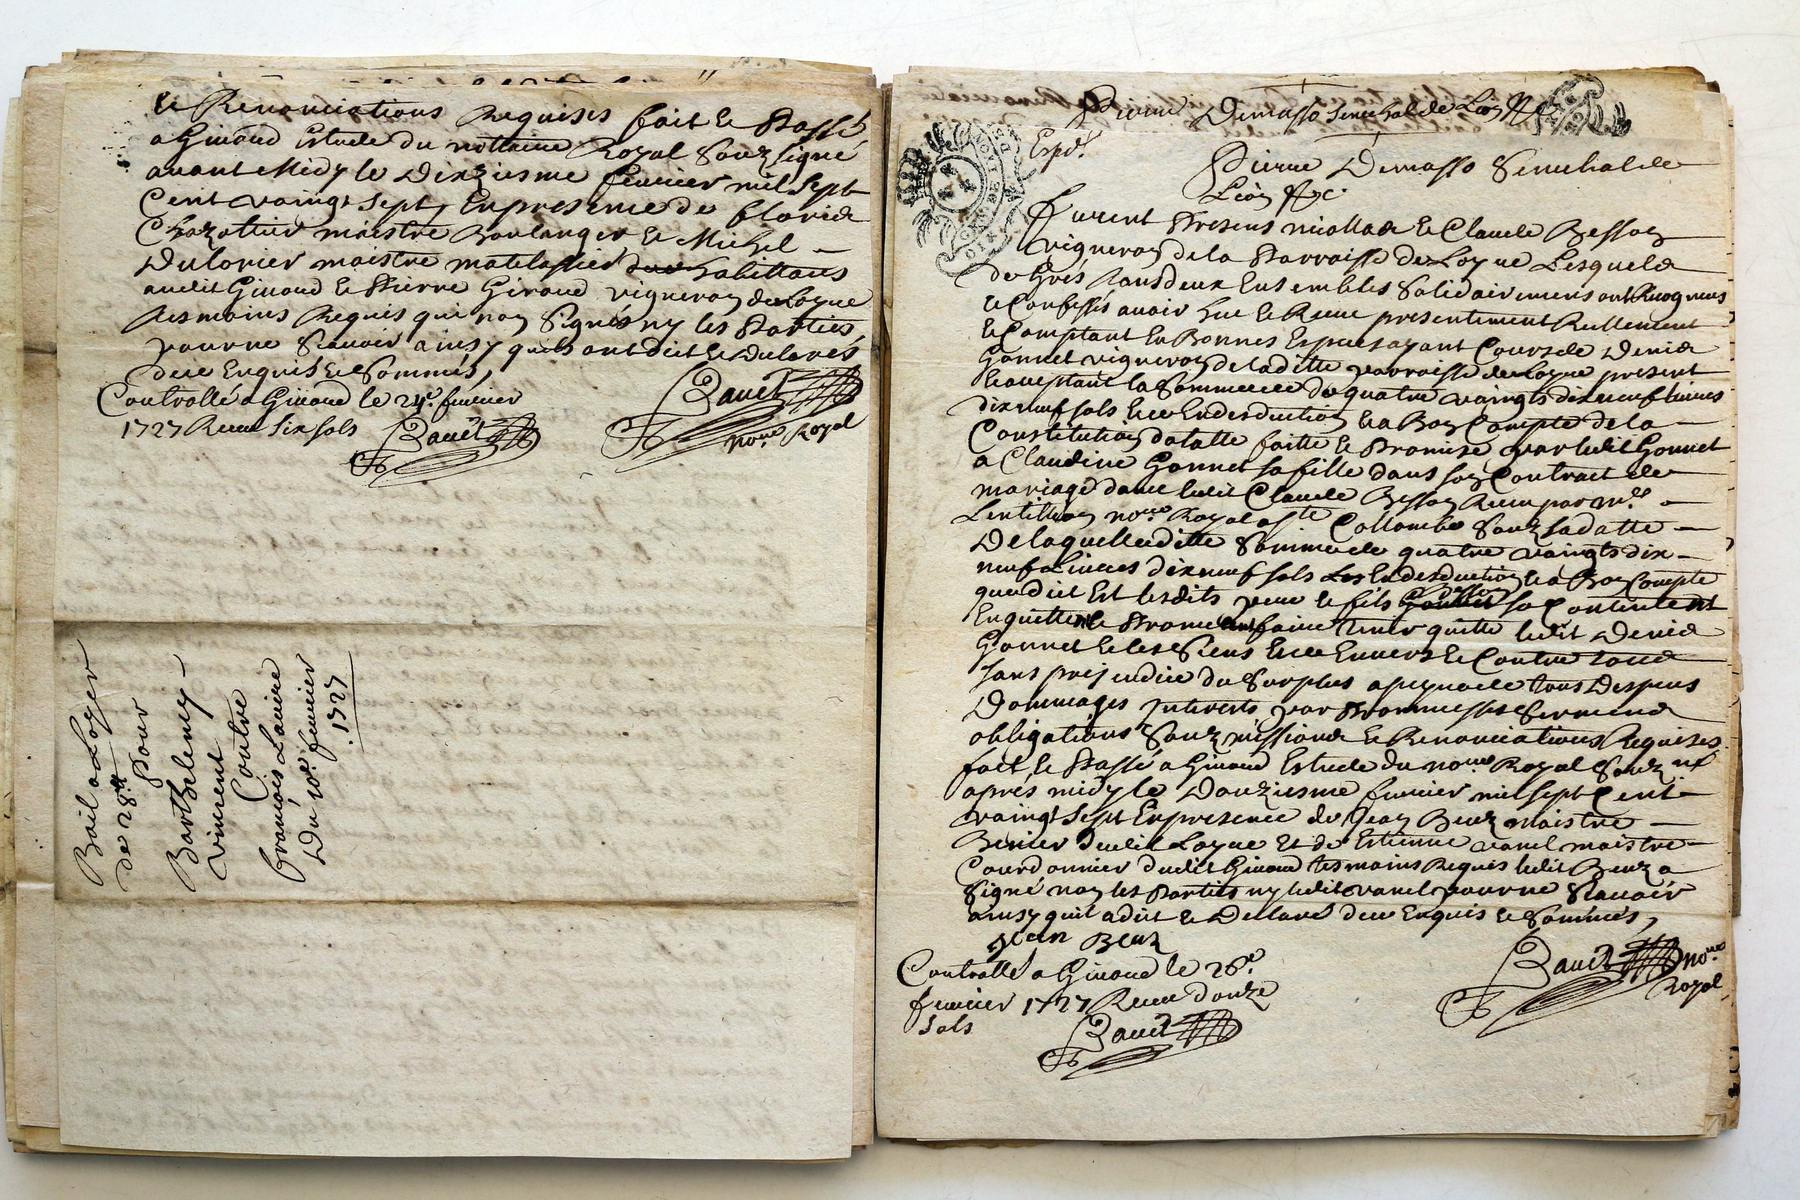 et Renonciations Requises fait et Passé
a Givord Estude du nottaire Royal Souz signé
avant Midy le Dixiesme fevrier mil sept
Cent vaingt sept, En presence de florid
Chazottier maistre Boulanger et Michel
Dulorier maistre matelassier habittans
audit Givord et Pierre Giraud vigneron de Loyre
tesmoins Requis qui non Signés ny les Parties
pour ne Scavoir ainsy quils ont dit et Declarés
de ce Enquis et Sommés,
Controllé a Givord le 24e. fevrier
1727 Receu Six sols
Bauet
Bauet
nore. Royal
Bail a Loyer
de 28 lt
Pour
Barthelemy
Vincent
Contre
François Laurre
Du 10e. fevrier
1727
Pierre Demasso Senechal de Lion &c
Expd.
Pierre Demasso Senechal de
Lion &c.
furent Presens Claude Besson
vigneron de la Parroisse de Loyre Lesquels
de Gres tous deux Ensembles Solidairement ont Recogneus
et Confessés avoir heu et Receu presentement Reellement
et Comptant En Bonnes Especes ayant Cours de Denis
Gonnet vigneron de laditte parroisse de Loyre present
et aceptant la Somme de quatre vaingts dix neuf livres
dix neuf sols Et ce En desduction et a Bon Compte de la
Constitution dotalle faitte et Promise par ledit Gonnet
a Claudine Gonnet sa fille dans son Contract de
mariage avec ledit Claude Besson Receu par me.
Lentillon nore. Royal a Ste Collombe Souz sa datte
De laquelle ditte Somme de quatre vaingts dix
neuf Livres dix neuf sols Les En desduction et a Bon Compte
que dit Est lesdits pere et fils Besson se Contentent
Enquittent et Promettent faire tenir quitte ledit Denis
Gonnet et les Siens Et ce Envers et Contre tous
Sans prejudice du Surplus a peyne de tous Despens
Dommages Interests par Promesses Serments
obligations Souzmissions et Renonciations Requises
fait et Passé a Givord Estude du nore. Royal Souz né
apres midy le Douziesme fevrier mil sept Cent
vaingt sept En presence de Jean Benz maistre
dudit Loyre Et de Estienne vanel maistre
Courdonnier dudit Givord tesmoins Requis ledit Benz a
Signé non les Parties ny ledit vanel pour ne Scavoir
ainsy quil a dit et Declaré de ce Enquis et Sommés,
Jean Benz
Controllé a Givord le 26e.
fevrier 1727 Receu douze
sols
Bauet
Bauet nore.
Royal